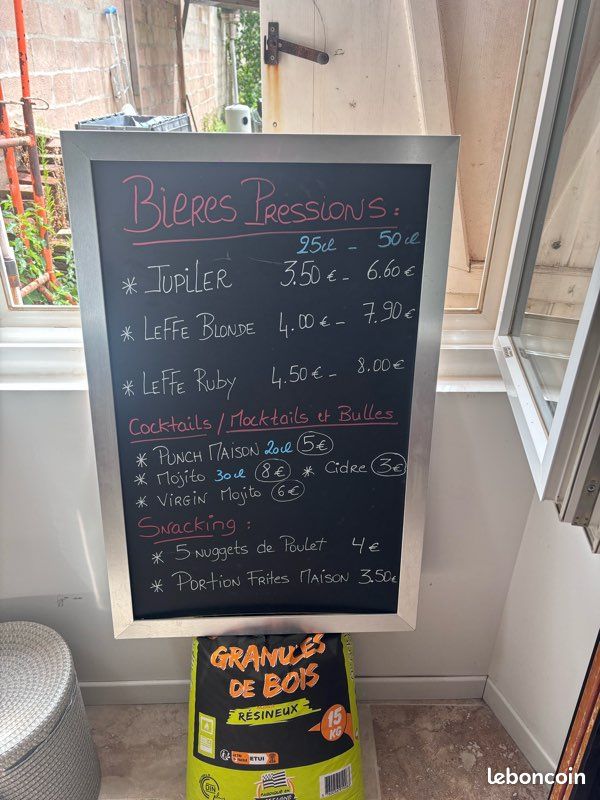 Bieres Pressions :
25cl - 50cl
* Jupiler 3.50 € - 6.60 €
* Leffe Blonde 4.00 € - 7.90 €
* Leffe Ruby 4.50 € - 8.00 €
Cocktails / Mocktails et Bulles
* Punch Maison 20cl 5€
* Mojito 30cl 8€ * Cidre 3€
* Virgin Mojito 6€
Snacking :
* 5 nuggets de Poulet 4€
* Portion Frites Maison 3.50€
GRANULÉS
DE BOIS
RÉSINEUX
15
KG
ETUI
DIN
leboncoin